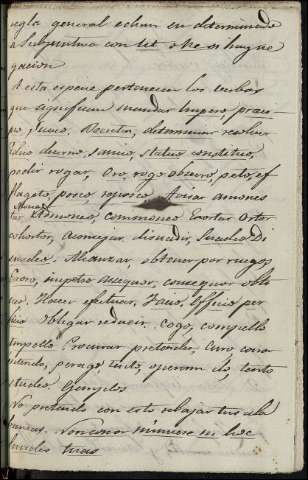 regla general echan en determinado
a Subjuntivo con ut o ne si hay ne
gacion
A esta especie pertenecen los verbos
que significan mandar Impero, praeci
pio, Juveo, Decretar, determinar resolver
Edico decerno, sancio, statuo constituo,
pedir rogar, Oro, rogo obsecro, peto, ef
flagito, precor, Avisar amones
tar Moneo, commoneo Exortar Ortor
cohortor, aconsejar, disuadir, Suadeo Di
suadeo, Alcanzar, obtener por ruegos
Exoro, impetro Asequor, consequor obti
neo, Hacer efectuar, Facio, Efficio per
ficio Obligar reducir, cogo, compello
Impello Procurar pretender, Curo
contendo, operam do,
studeo Ejemplos
No pretendo con esto rebajar tus ala
banzas. Non conor minuere in hoc
laudes tuas